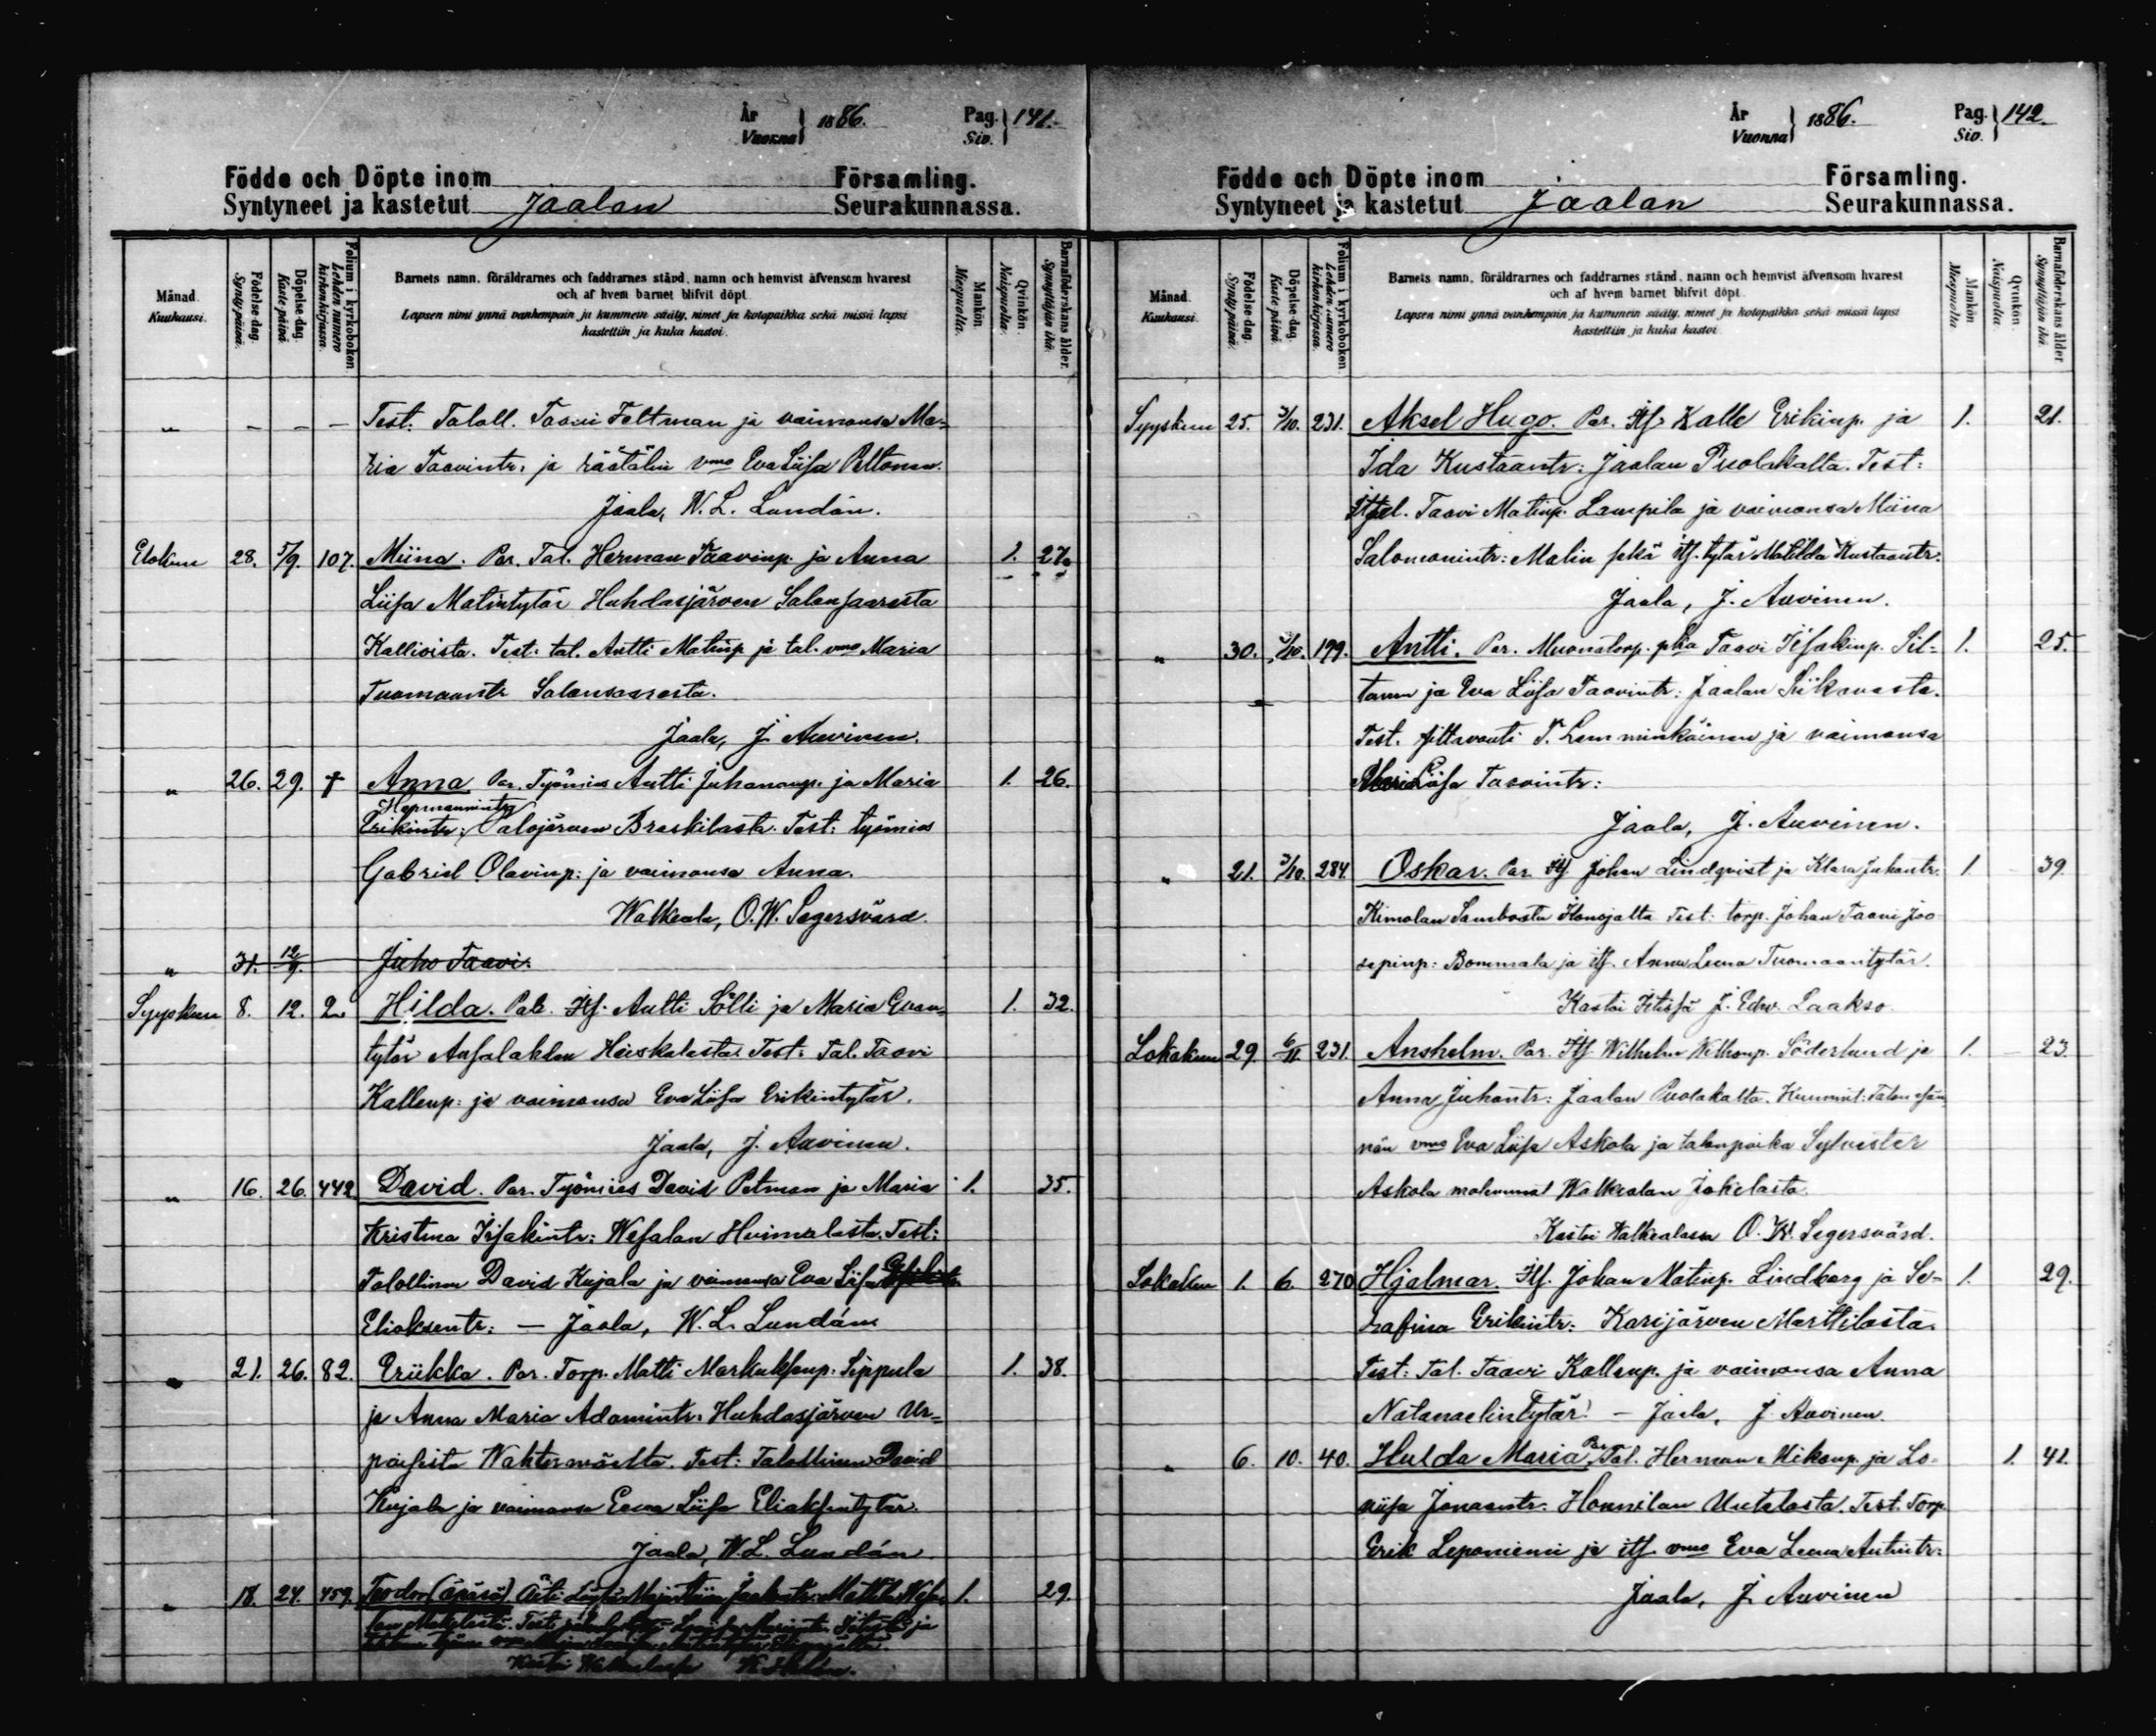 År
Vuonna } 1886.
Pag.
Siv. } 141.
Födde och Döpte inom Församling.
Syntyneet ja kastetut Jaalan Seurakunnassa.
Månad. Kuukausi.
Födelse-dag. Syntypäivä.
Döpelse-dag. Kastepäivä.
Folium i kyrkoboken Lehden numero kirkonkirjassa.
Barnets namn, föräldrarnes och faddrarnes stånd, namn och hemvist äfvensom hvarest
och af hvem barnet blifvit döpt.
Lapsen nimi ynnä vanhempain ja kummein sääty, nimet ja kotopaikka sekä missä lapsi
kastettiin ja kuka kastoi.
Mankön. Miespuolta.
Qvinkön. Naispuolta.
Barnaföderskans ålder. Synnyttäjän ikä.
" - - - Test: Taloll. Taavi Feltman ja vaimonsa Ma-
ria Taavintr. ja räätälin vmo Eva Liisa Peltonen.
Jaala, W. L. Lundán.
Elokuu 28. 5/9. 107. Miina. Par. Tal. Herman Taavinp. ja Anna 1. 27.
Liisa Matintytär Huhdasjärven Salonsaaresta
Kallioista. Test: tal. Antti Matinp ja tal. vmo Maria
Tuomaantr Salonsaaresta.
Jaala, J. Auvinen.
" 26. 29. † Anna Par. Työmies Antti Juhananp. ja Maria 1. 26.
Hermannintr
Erikintr: Palojärven Braskilasta. Test: työmies
Gabriel Olavinp: ja vaimonsa Anna.
Walkeala, O. W. Segersvärd.
" 31. 12/9. Juho Taavi.
Syyskuu 8. 12. 2. Hilda. Par. Itf. Antti Sölli ja Maria Evan- 1. 32.
tytär Ansalahden Heiskalasta. Test: Tal. Taavi
Kallenp: ja vaimonsa Eva Liisa Erikintytär.
Jaala, J. Auvinen.
" 16. 26. 442. David. Par. Työmies David Petman ja Maria 1. 35.
Kristina Iisakintr: Wesalan Huimalasta. Test:
Talollinen David Kujala ja vaimonsa Eva Liisa
Eliaksentr: — Jaala, W. L. Lundán
" 21. 26. 82. Eriikka. Par. Torp. Matti Markuksenp. Seppula 1. 38.
ja Anna Maria Adamintr. Huhdasjärven Ur-
paisista Wahtermäeltä. Test: Talollinen David
Kujala ja vaimonsa Eeva Liisa Eliaksentytär.
Jaala, W. L. Lundán
" 18. 24. 459. Teodor (äpärä) Äiti: 1. 29.
År
Vuonna } 1886.
Pag.
Siv. } 142.
Födde och Döpte inom Församling.
Syntyneet ja kastetut Jaalan Seurakunnassa.
Månad. Kuukausi.
Födelse-dag. Syntypäivä.
Döpelse-dag. Kastepäivä.
Folium i kyrkoboken Lehden numero kirkonkirjassa.
Barnets namn, föräldrarnes och faddrarnes stånd, namn och hemvist äfvensom hvarest
och af hvem barnet blifvit döpt.
Lapsen nimi ynnä vanhempain ja kummein sääty, nimet ja kotopaikka sekä missä lapsi
kastettiin ja kuka kastoi.
Mankön Miespuolta
Qvinkön. Naispuolta.
Barnaföderskans ålder. Synnyttäjän ikä.
Syyskuu 25. 3/10. 231. Aksel Hugo. Par. Itf. Kalle Erikinp. ja 1. 21.
Ida Kustaantr: Jaalan Puolakalta. Test:
Taavi Matinp. Lampila ja vaimonsa Miina
Salomonintr: Malin sekä itf. tytär Matilda Kustaantr:
Jaala, J. Auvinen.
" 30. 199. Antti. Par. Muonatorp. pka Taavi Iisakinp. Sil- 1. 25.
tanen ja Eva Liisa Taavintr: Jaalan Siikavasta.
Test. sittavouti T. Lemminkäinen ja vaimonsa
Liisa Taavintr:
Jaala, J. Auvinen.
" 21. 3/10. 284. Oskar. Par. Itf. Johan Lindqvist ja Klara Juhantr. 1 39
Kimolan Test: torp. Johan Taavi Joo-
sepinp: Bommala ja itf. Anna Leena Tuomaantytär.
Kastoi Iitissä J. Edv. Laakso.
Lokakuu 29. 6/11. 231. Anshelm. Par. Itf. Wilhelm Wilhonp. Söderlund ja 1. 23.
Anna Juhantr: Jaalan Puolakalta. Kummit: Talon isän
nän vmo Eva Liisa Askola ja talonpoika Sylvester
Askola molemmat Walkealan Jokelasta.
Kastoi Walkealassa O. W. Segersvärd.
Lokakuu 1. 6. 270 Hjalmar. Itf. Johan Matinp. Lindberg ja Se- 1. 29.
rafina Erikintr: Karijärven Marttilasta.
Test: Tal. Taavi Kallenp. ja vaimonsa Anna
Natanaelintytär. — Jaala, J. Auvinen.
" 6. 10. 40. Hulda Maria. Par. Tal. Herman Mikonp. ja Lo- 1. 41.
viisa Jonaantr. Honnilan Uutelasta. Test. Torp.
Erik Leponiemi ja itf. vmo Eva Leena Antintr:
Jaala, J. Auvinen